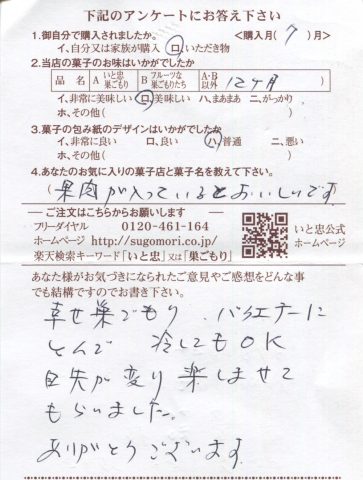 下記のアンケートにお答え下さい
1.御自分で購入されましたか。 <購入月( 7 )月>
イ、自分又は家族が購入 ロ、いただき物
2.当店の菓子のお味はいかがでしたか
品 名 A いと忠巣ごもり B フルーツな巣ごもりたち A・B以外 12ヶ月
イ、非常に美味しい ロ、美味しい ハ、まあまあ ニ、がっかり
ホ、その他(
3.菓子の包み紙のデザインはいかがでしたか
イ、非常に良い ロ、良い ハ、普通 ニ、悪い
ホ、その他(
4.あなたのお気に入りの菓子店と菓子名を教えて下さい。
(果肉が入っているとおいしいです)
ご注文はこちらからお願いします
フリーダイヤル 0120-461-164
ホームページ http://sugomori.co.jp/
楽天検索キーワード「いと忠」又は「巣ごもり」
いと忠公式
ホームページ
あなた様がお気づきになられたご意見やご感想をどんな事
でも結構ですのでお書き下さい。
幸せ巣ごもり、バラエティーに
とんで 冷してもOK
目先が変り楽しませて
もらいました。
ありがとうございます。